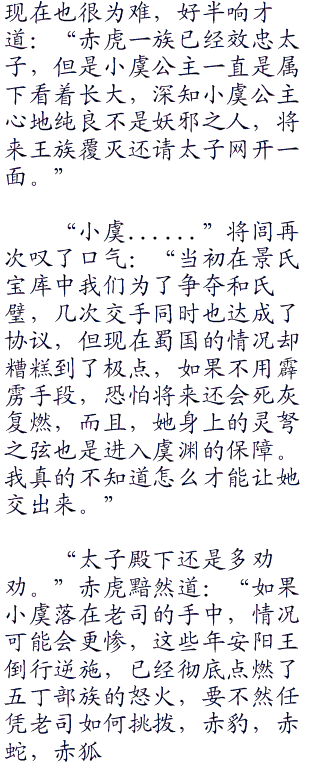 现在也很为难，好半响才
道：“赤虎一族已经效忠太
子，但是小虞公主一直是属
下看着长大，深知小虞公主
心地纯良不是妖邪之人，将
来王族覆灭还请太子网开一
面。”
“小虞......”将闾再
次叹了口气：“当初在景氏
宝库中我们为了争夺和氏
璧，几次交手同时也达成了
协议，但现在蜀国的情况却
糟糕到了极点，如果不用霹
雳手段，恐怕将来还会死灰
复燃，而且，她身上的灵弩
之弦也是进入虞渊的保障。
我真的不知道怎么才能让她
交出来。”
“太子殿下还是多劝
劝。”赤虎黯然道：“如果
小虞落在老司的手中，情况
可能会更惨，这些年安阳王
倒行逆施，已经彻底点燃了
五丁部族的怒火，要不然任
凭老司如何挑拨，赤豹，赤
蛇，赤狐